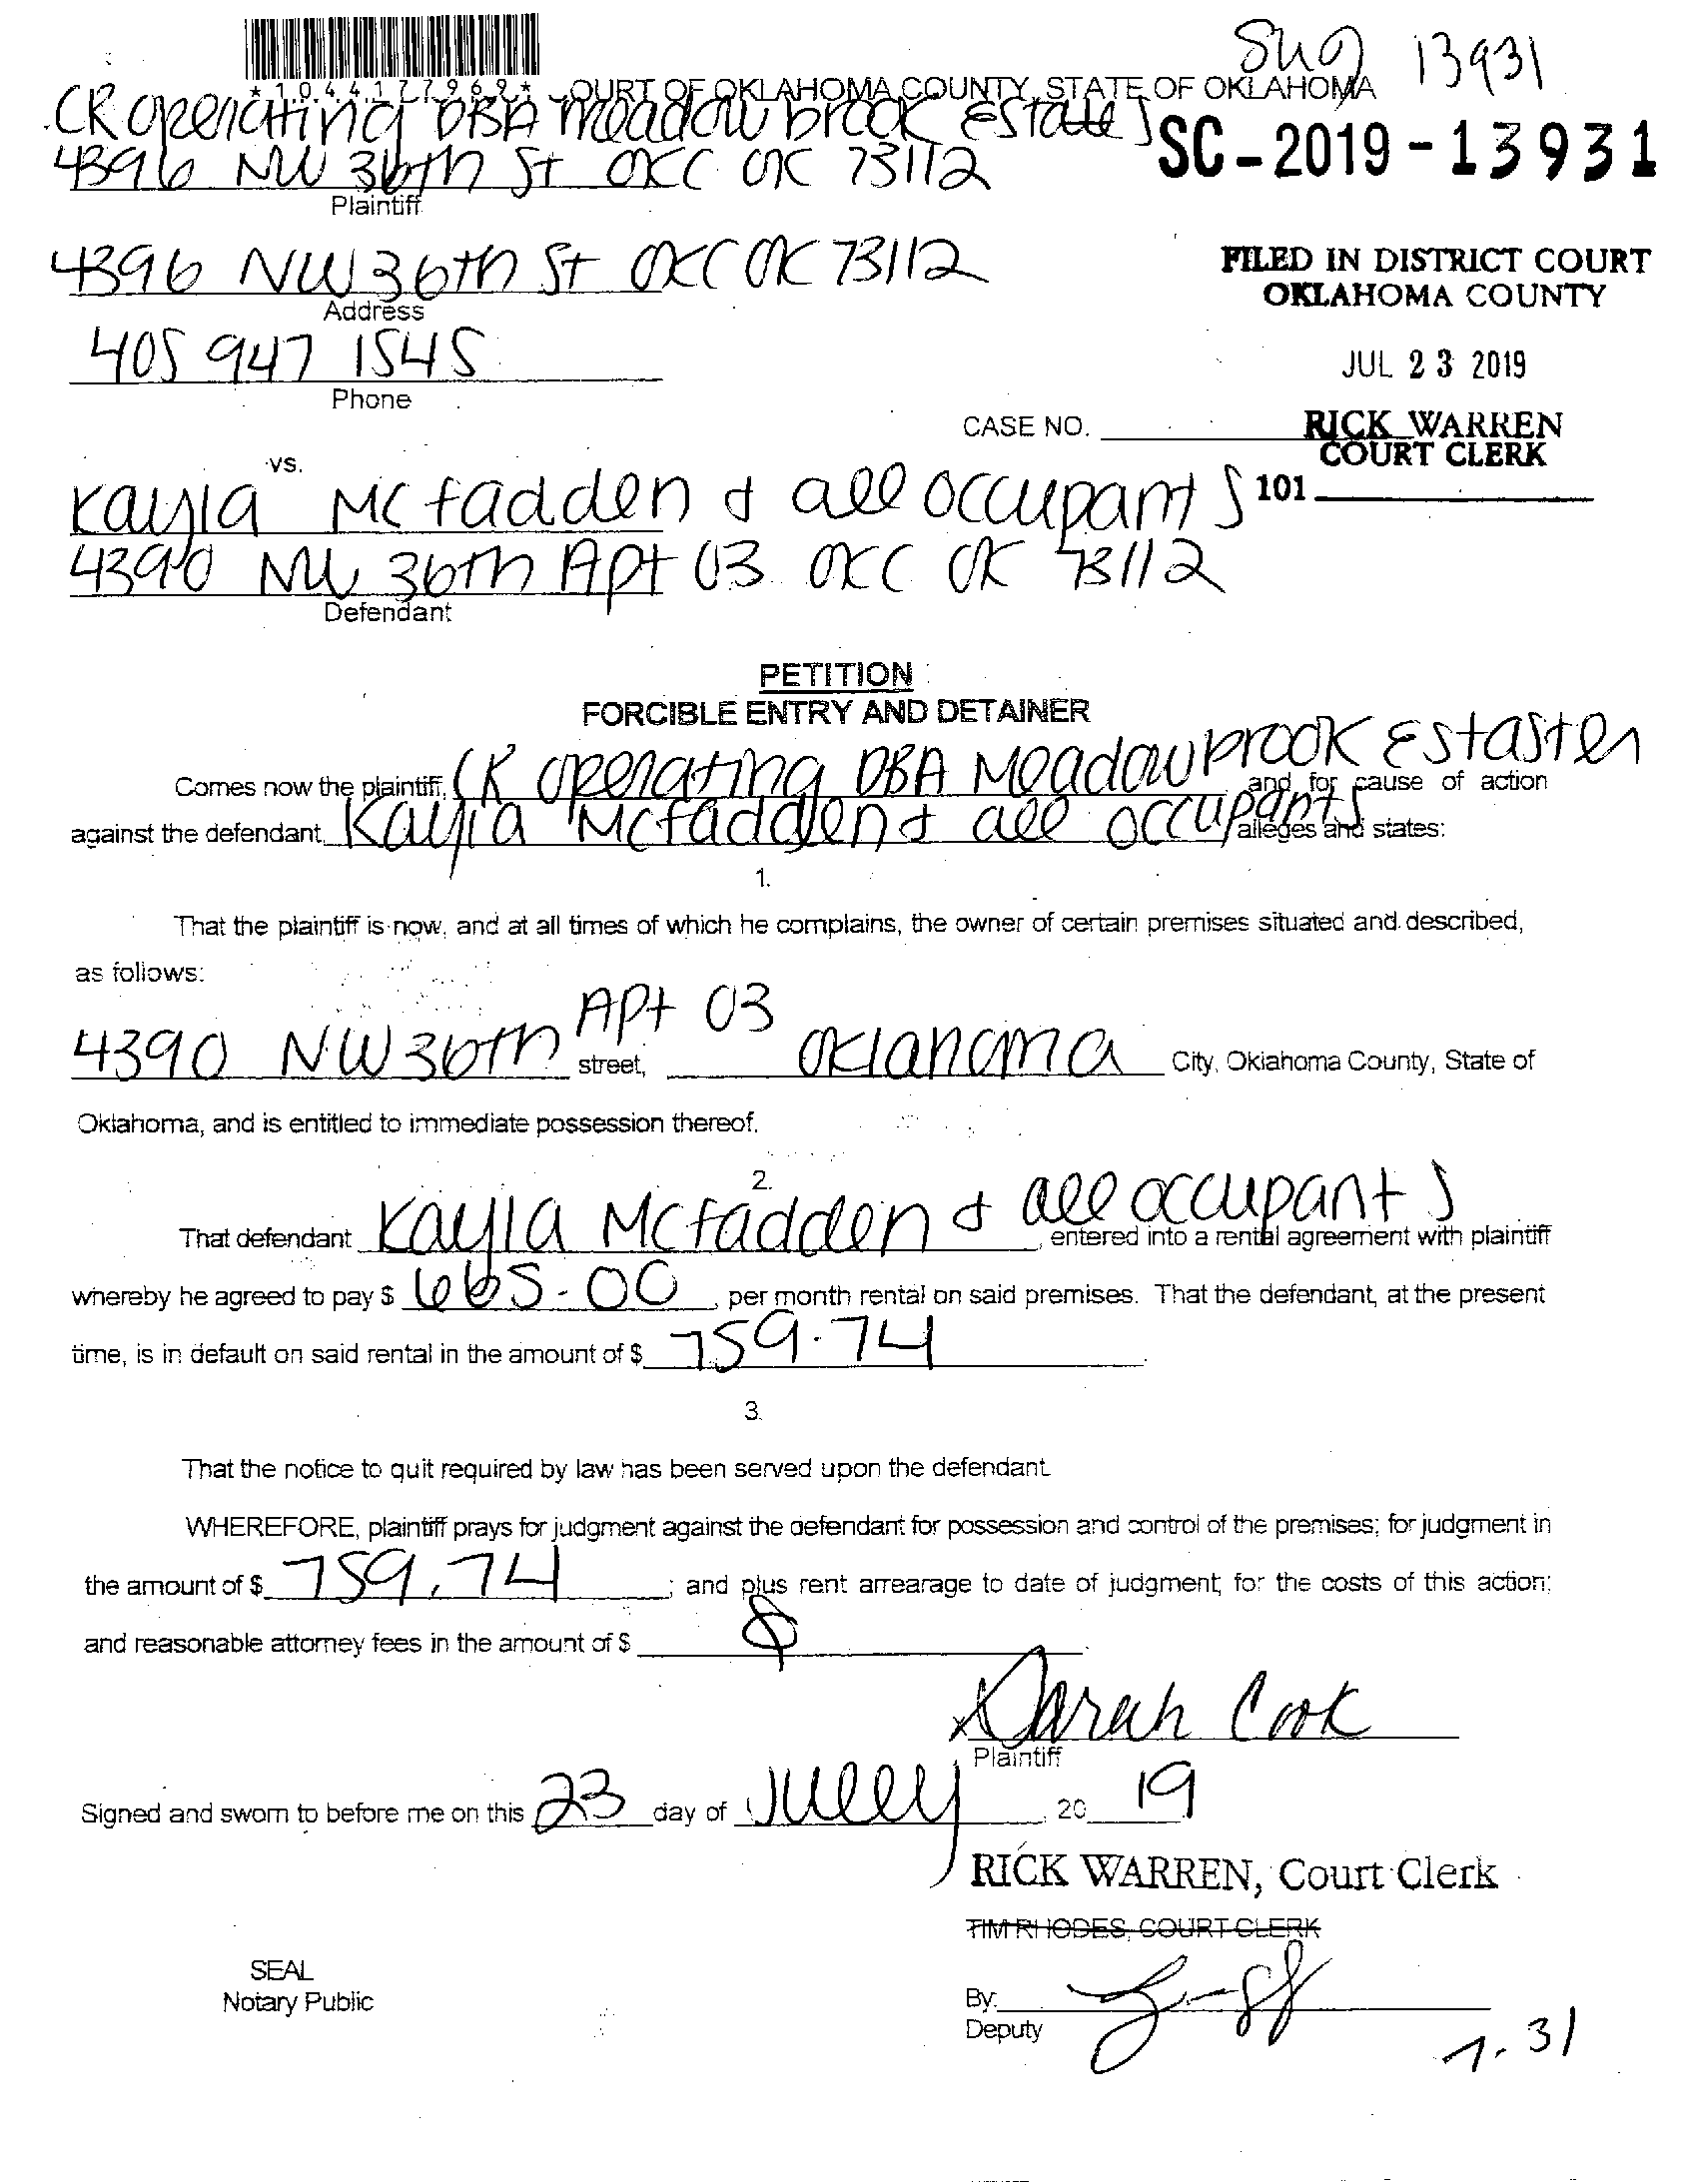 *1044177969*
OURT OF OKLAHOMA COUNTY, STATE OF OKLAHOMA
13931
CR Operating DBA Meadowbrook Estates
SC-2019-13931
4396 NW 36th St OKC OK 73112
Plaintiff
4396 NW 36th St OKC OK 73112
Address
FILED IN DISTRICT COURT
OKLAHOMA COUNTY
405 947 1545
Phone
JUL 23 2019
CASE NO.
RICK WARREN
COURT CLERK
vs.
Kayla McFadden & all occupants
101
4390 NW 36th Apt 03 OKC OK 73112
Defendant
PETITION
FORCIBLE ENTRY AND DETAINER
Comes now the plaintiff, CR Operating DBA Meadowbrook Estastes and for cause of action
against the defendant, Kayla McFadden & all occupants alleges and states:
1.
That the plaintiff is now, and at all times of which he complains, the owner of certain premises situated and described,
as follows:
4390 NW 36th Apt 03 street, Oklahoma City, Oklahoma County, State of
Oklahoma, and is entitled to immediate possession thereof.
2.
That defendant Kayla McFadden & all occupants, entered into a rental agreement with plaintiff
whereby he agreed to pay $ 665.00, per month rental on said premises. That the defendant, at the present
time, is in default on said rental in the amount of $ 759.74.
3.
That the notice to quit required by law has been served upon the defendant.
WHEREFORE, plaintiff prays for judgment against the defendant for possession and control of the premises; for judgment in
the amount of $ 759.74; and plus rent arrearage to date of judgment; for the costs of this action;
and reasonable attorney fees in the amount of $
X Sarah Cook
Plaintiff
Signed and sworn to before me on this 23 day of July, 2019
RICK WARREN, Court Clerk
TIM RHODES, COURT CLERK
SEAL
Notary Public
By:
Deputy
7.31